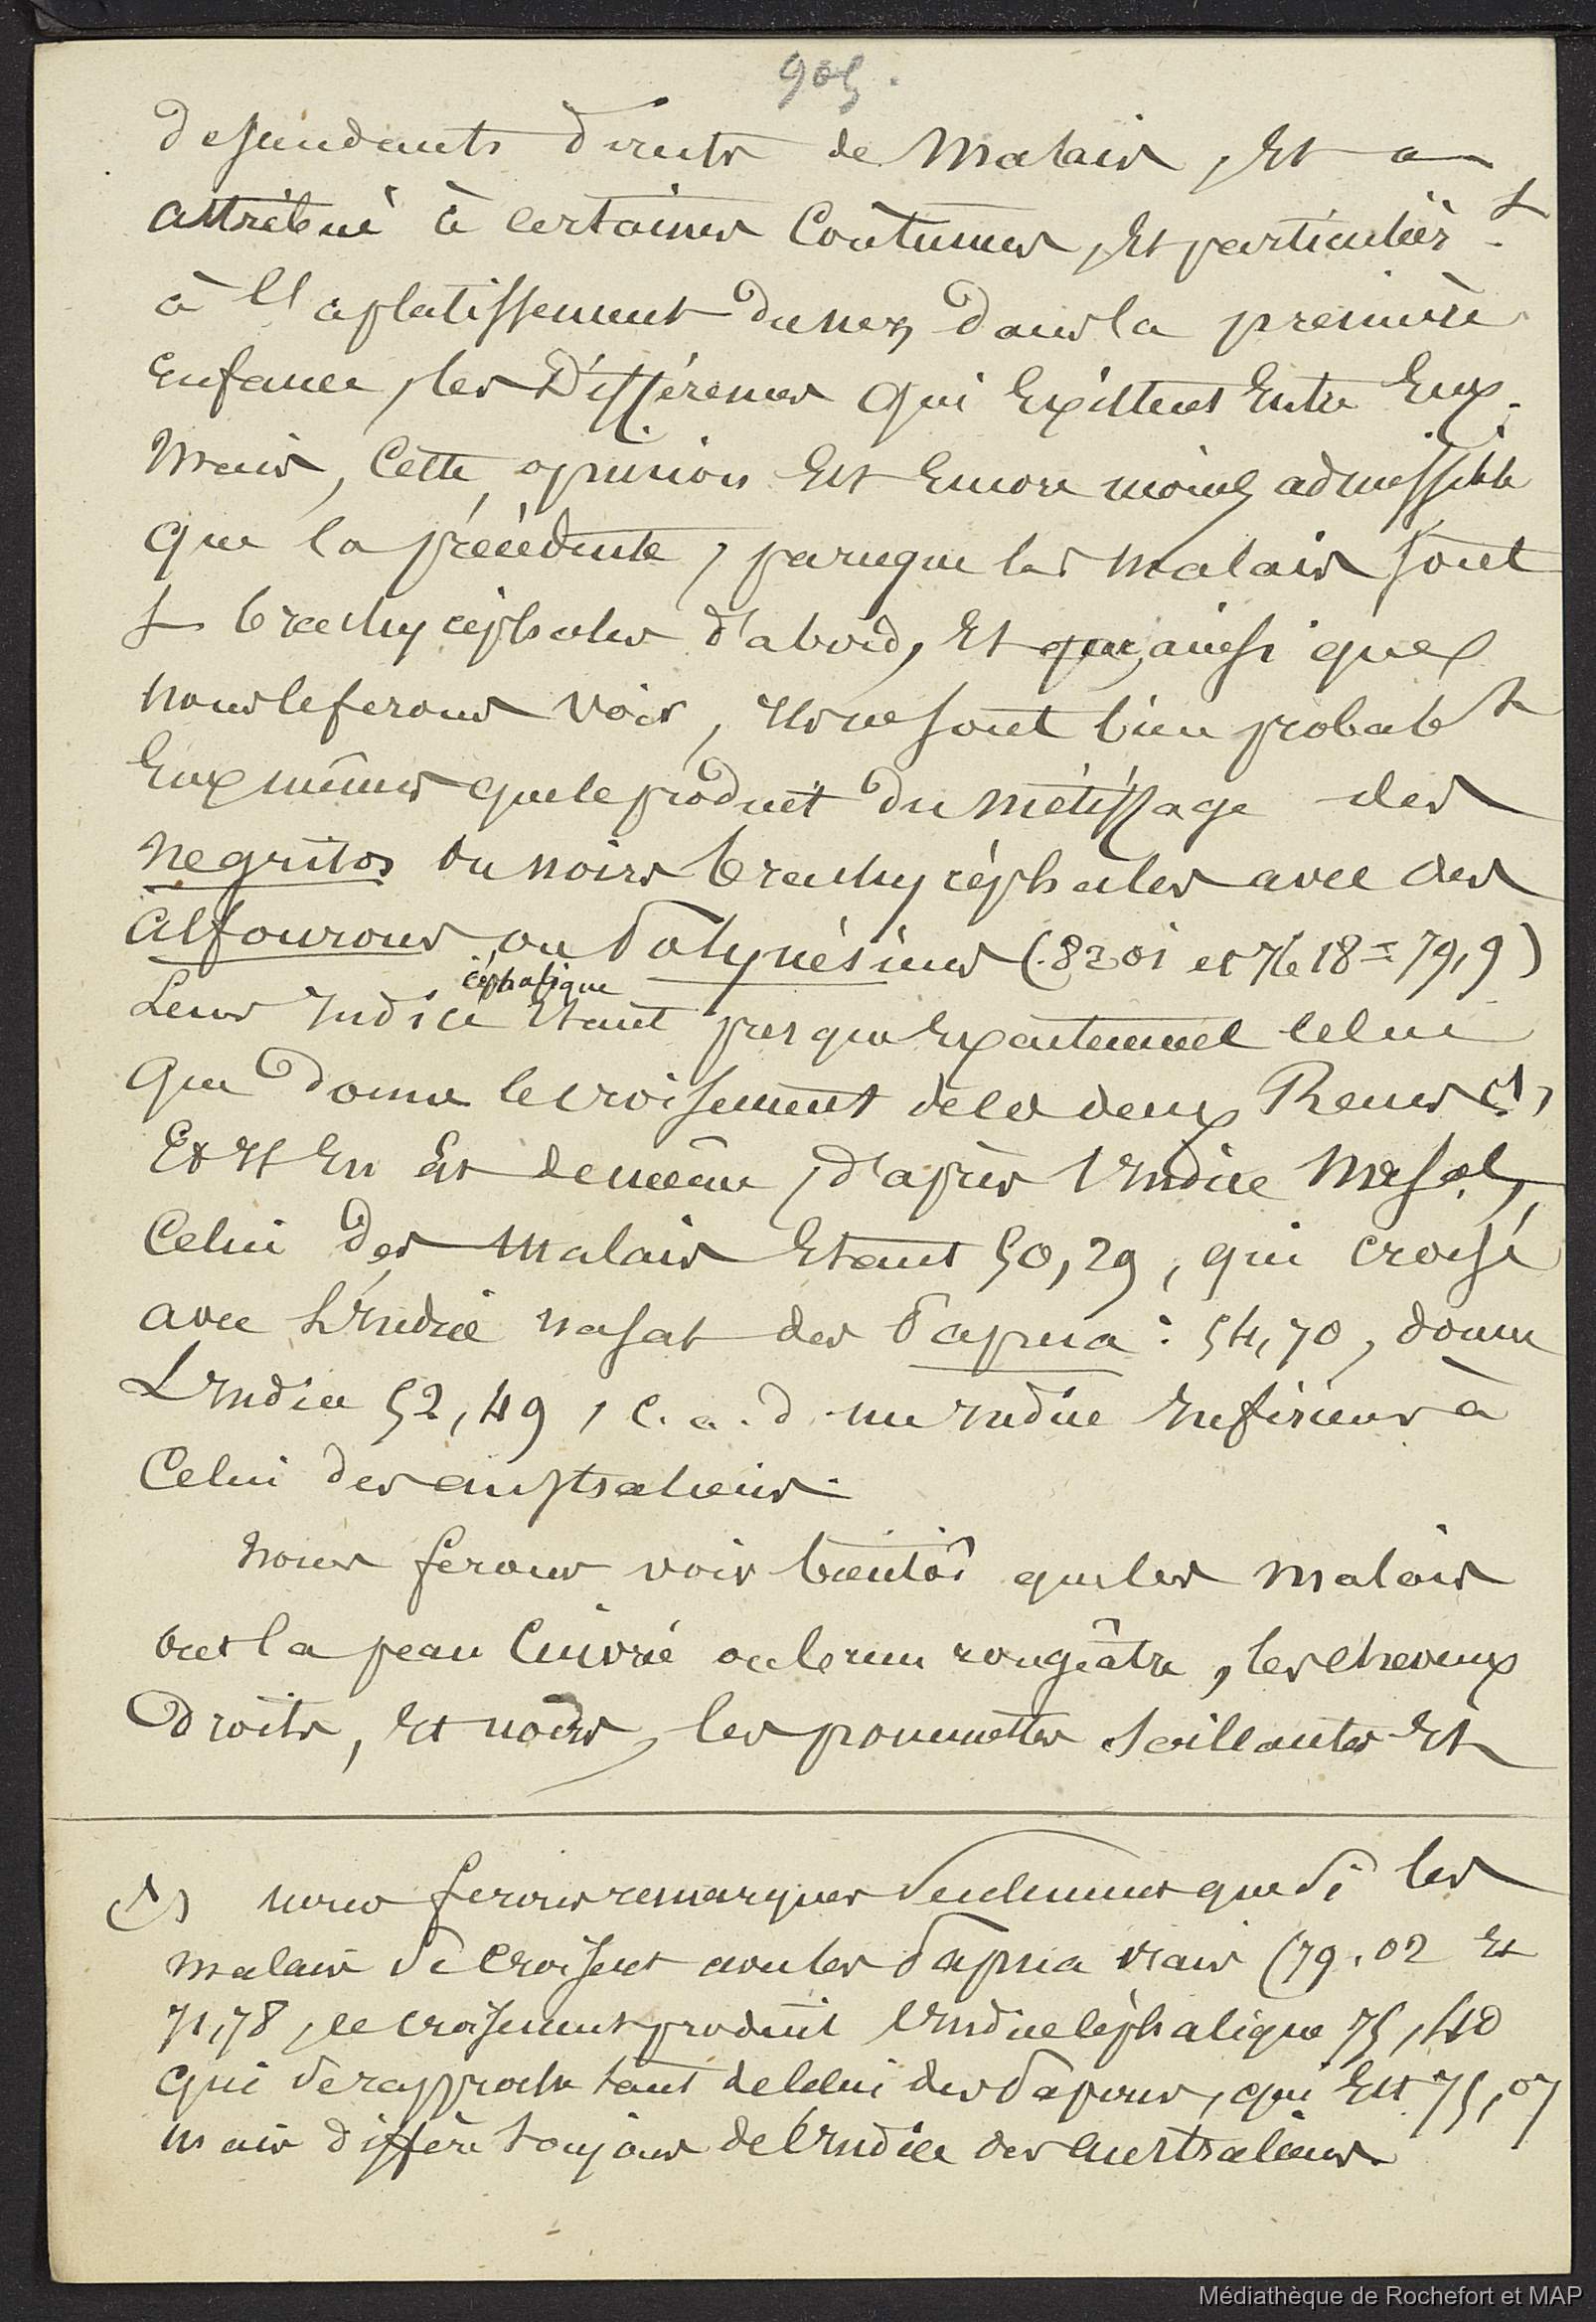 905.
descendants directs de Malais, et a
attribué à certaines Coutumes, et particulièr t
à l'aplatissement du nez dans la première
enfance, les Différences qui Existent Entre Eux.
Mais, cette opinion Est Encore moins admissible
que la précédente, parceque les Malais sont
brachycéphales d'abord, Et que, ainsi que
nous le ferons voir, ils ne sont bien probabl t
Eux mêmes que le produit du métissage des
Negritos ou noirs brachycéphales avec des
Alfourous ou Polynésiens (8301 et 7618 = 79,9)
céphalique
Leur Indice Etant presque Exactement celui
que donne le croisement de ces deux Races (1),
Et il En Est de même, d'après l'Indice Nasal,
Celui des Malais Etant 50,29, qui croisé
avec L'Indice nasal des Papua : 54,70, donne
L'Indice 52,49, c.a.d. un indice Inférieur à
Celui des australiens.
Nous ferons voir bientôt que les Malais
ont la peau Cuivrée ou brun rougeâtre, les cheveux
Droits, Et noirs, les pommettes saillantes Et
(1) nous ferons remarquer Seulement que Si les
Malais Se Croisent avec les Papua vrais (79.02 Et
71,78, le croisement produit l'Indice Céphalique 75,40
qui Se rapproche tant de celui des Papous, qui Est 75,07
mais diffère toujours de l'Indice des Australiens.